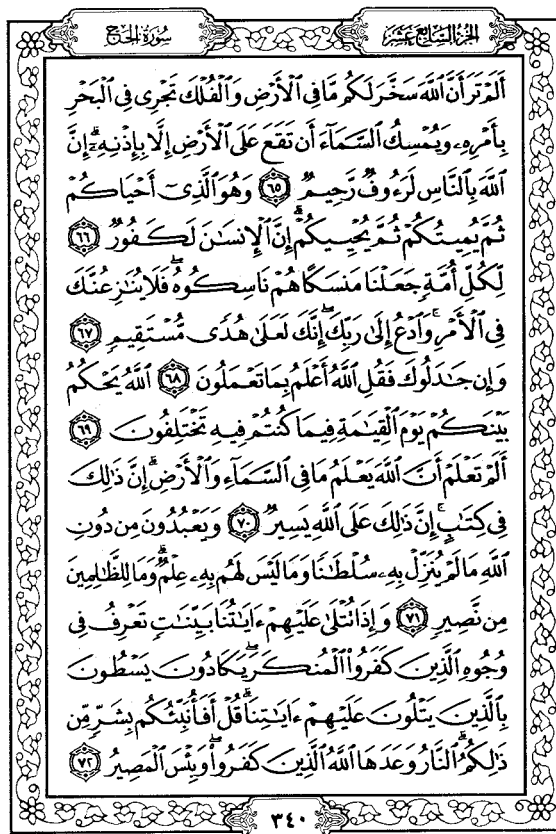 الجزء السابع عشر
سورة الحج
أَلَمْ تَرَ أَنَّ ٱللَّهَ سَخَّرَ لَكُم مَّا فِى ٱلْأَرْضِ وَٱلْفُلْكَ تَجْرِى فِى ٱلْبَحْرِ
بِأَمْرِهِۦ وَيُمْسِكُ ٱلسَّمَآءَ أَن تَقَعَ عَلَى ٱلْأَرْضِ إِلَّا بِإِذْنِهِۦٓ ۗ إِنَّ
ٱللَّهَ بِٱلنَّاسِ لَرَءُوفٌ رَّحِيمٌ ٦٥ وَهُوَ ٱلَّذِىٓ أَحْيَاكُمْ
ثُمَّ يُمِيتُكُمْ ثُمَّ يُحْيِيكُمْ ۗ إِنَّ ٱلْإِنسَٰنَ لَكَفُورٌ ٦٦
لِكُلِّ أُمَّةٍ جَعَلْنَا مَنسَكًا هُمْ نَاسِكُوهُ ۖ فَلَا يُنَٰزِعُنَّكَ
فِى ٱلْأَمْرِ ۚ وَٱدْعُ إِلَىٰ رَبِّكَ ۖ إِنَّكَ لَعَلَىٰ هُدًى مُّسْتَقِيمٍ ٦٧
وَإِن جَٰدَلُوكَ فَقُلِ ٱللَّهُ أَعْلَمُ بِمَا تَعْمَلُونَ ٦٨ ٱللَّهُ يَحْكُمُ
بَيْنَكُمْ يَوْمَ ٱلْقِيَٰمَةِ فِيمَا كُنتُمْ فِيهِ تَخْتَلِفُونَ ٦٩
أَلَمْ تَعْلَمْ أَنَّ ٱللَّهَ يَعْلَمُ مَا فِى ٱلسَّمَآءِ وَٱلْأَرْضِ ۗ إِنَّ ذَٰلِكَ
فِى كِتَٰبٍ ۚ إِنَّ ذَٰلِكَ عَلَى ٱللَّهِ يَسِيرٌ ٧٠ وَيَعْبُدُونَ مِن دُونِ
ٱللَّهِ مَا لَمْ يُنَزِّلْ بِهِۦ سُلْطَٰنًا وَمَا لَيْسَ لَهُم بِهِۦ عِلْمٌ ۗ وَمَا لِلظَّٰلِمِينَ
مِن نَّصِيرٍ ٧١ وَإِذَا تُتْلَىٰ عَلَيْهِمْ ءَايَٰتُنَا بَيِّنَٰتٍ تَعْرِفُ فِى
وُجُوهِ ٱلَّذِينَ كَفَرُوا۟ ٱلْمُنكَرَ ۖ يَكَادُونَ يَسْطُونَ
بِٱلَّذِينَ يَتْلُونَ عَلَيْهِمْ ءَايَٰتِنَا ۗ قُلْ أَفَأُنَبِّئُكُم بِشَرٍّ مِّن
ذَٰلِكُمُ ۗ ٱلنَّارُ وَعَدَهَا ٱللَّهُ ٱلَّذِينَ كَفَرُوا۟ ۖ وَبِئْسَ ٱلْمَصِيرُ ٧٢
٣٤٠